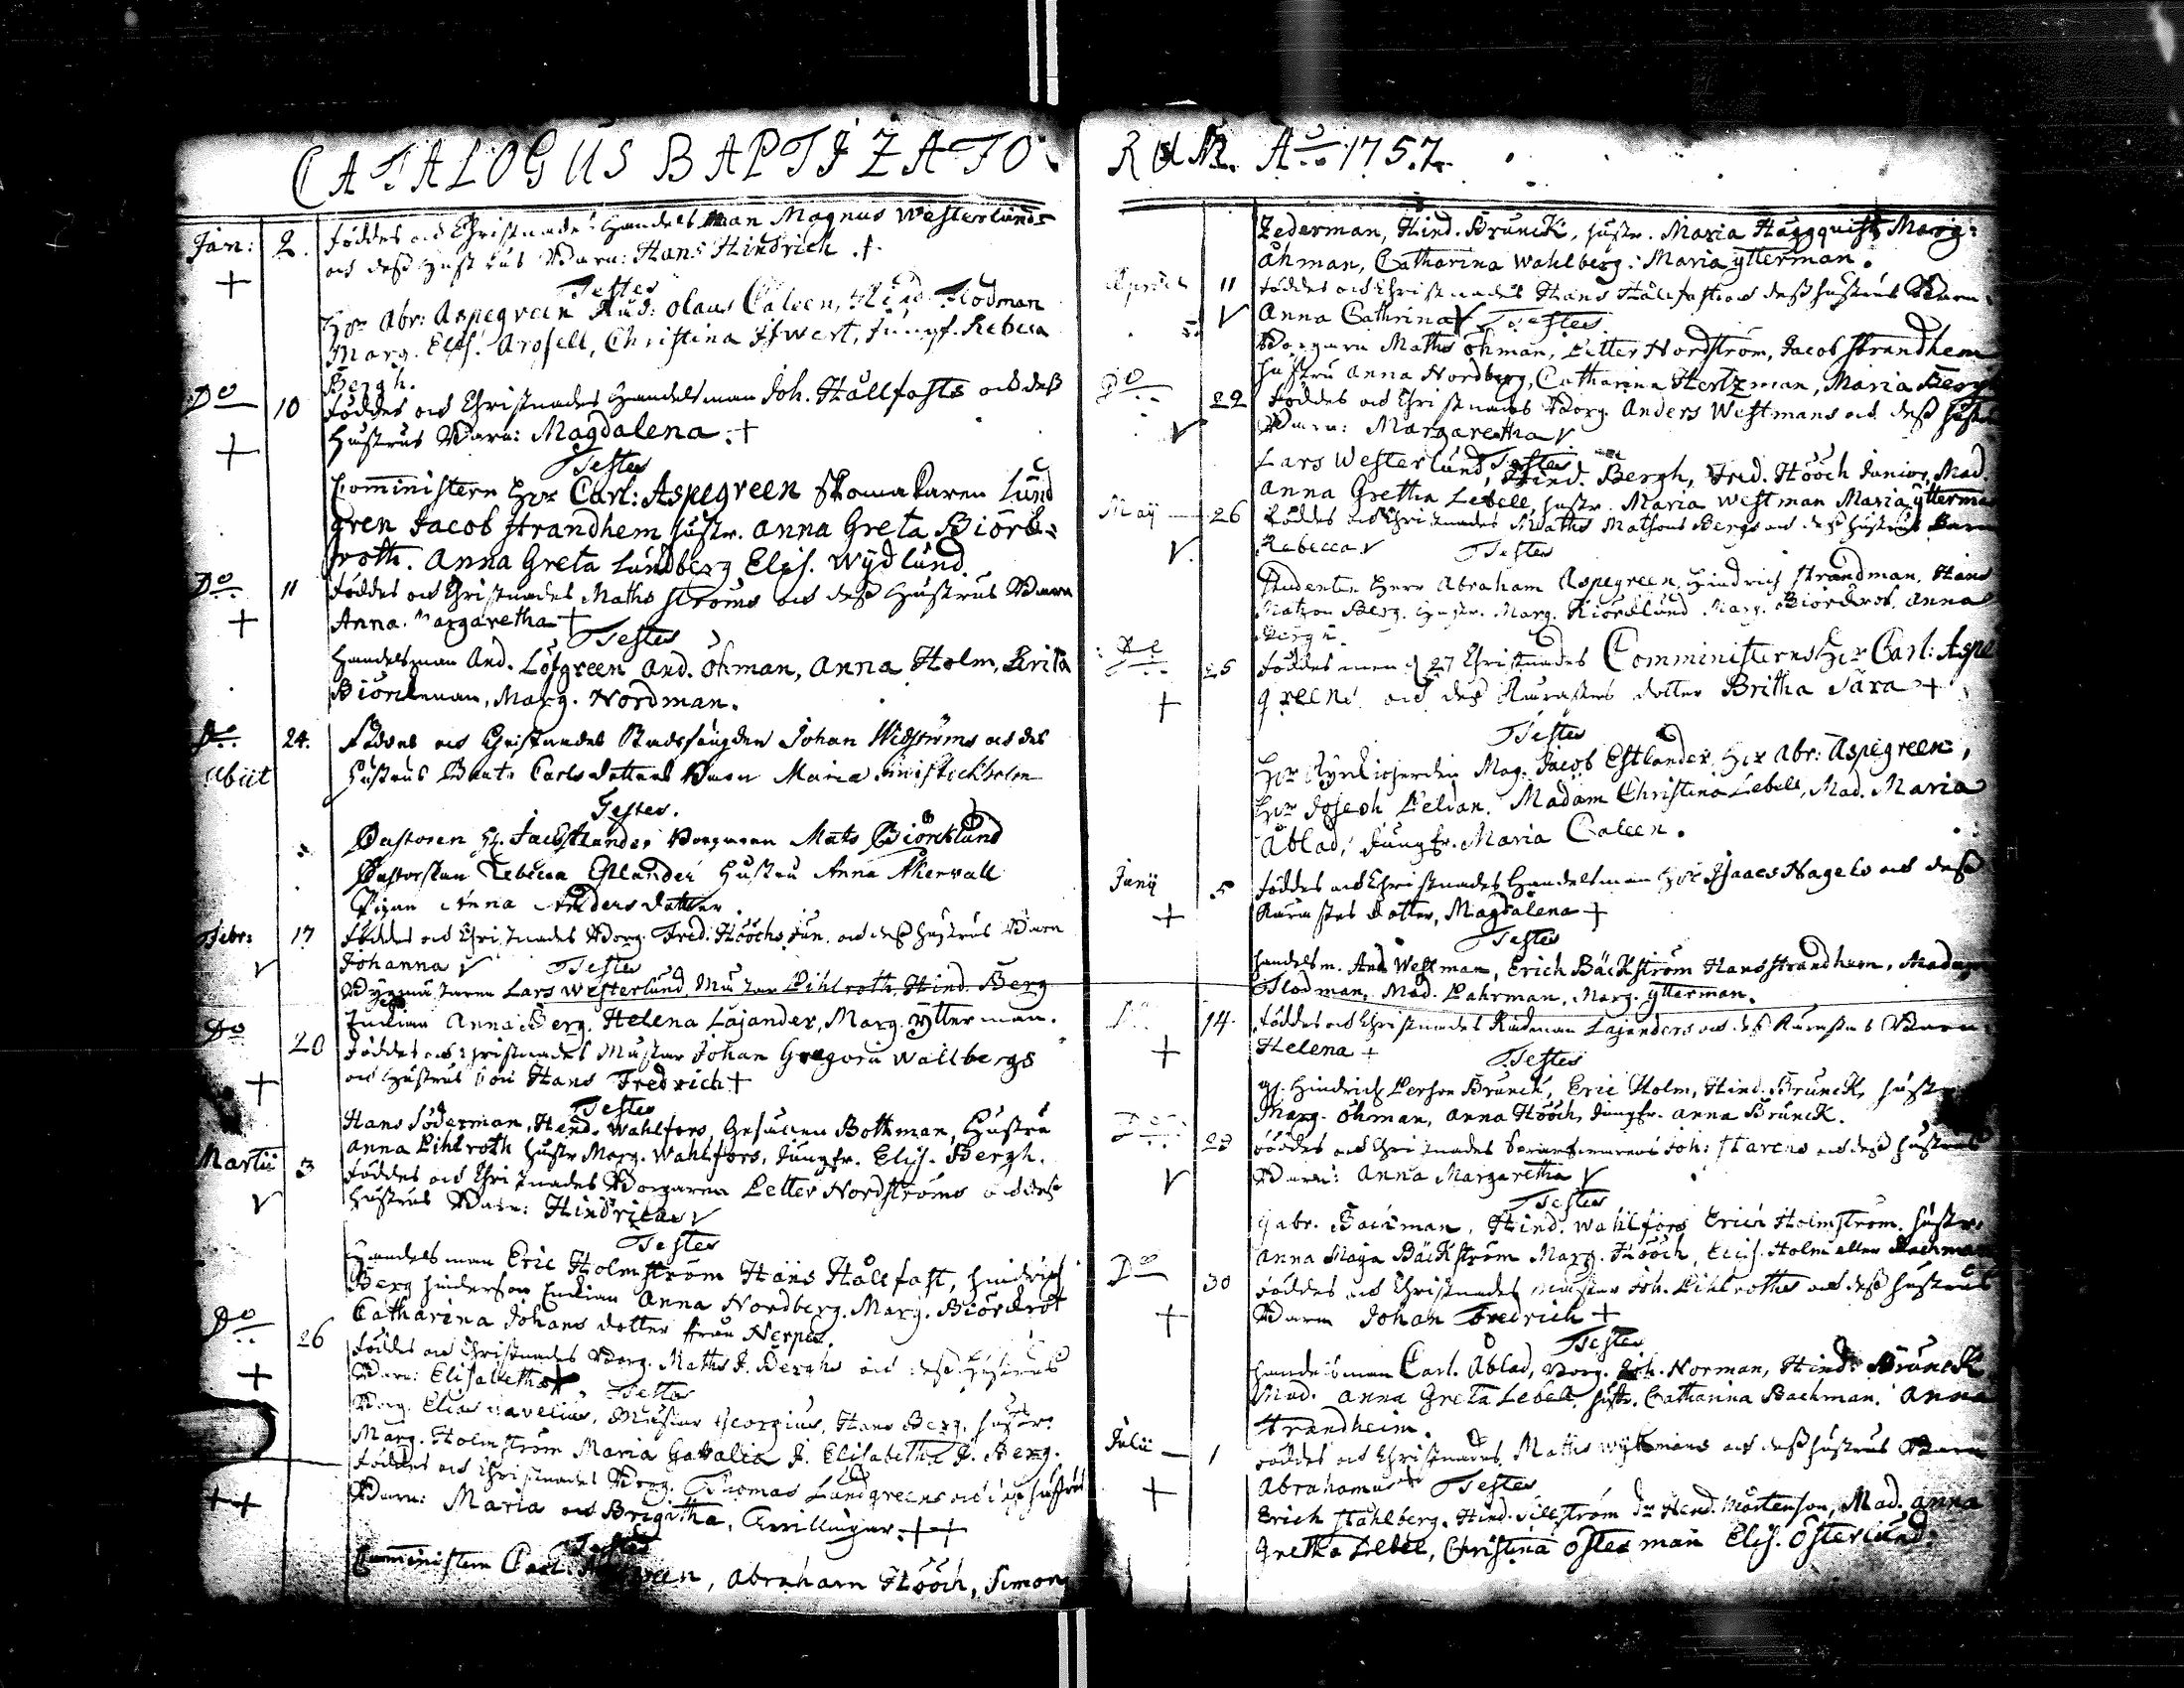 CATALOGUS BAPTIZATO
Jan: 2. Föddes och Christnades Handelsman Magnus Westerlunds
och dess Hustrus Barn: Hans Hindrich +
Testes
Hr Abr: Aspegreen Stud: Olaus Caleen, Hind. Flodman
Marg. Elis. Arosell, Christina Jungf. Rebecca
Bergh.
Do 10 Föddes och Christnades Handelsman Joh. Hållfasts och dess
Hustrus Barn: Magdalena. +
Testes
Comministern Hr Carl: Aspegreen Skomakaren Lund
gren Jacob Strandhem hustr. Anna Greta Biörk-
roth. Anna Greta Lundberg Elis. Wydlund
Do 11 Föddes och Christnades Maths Ströms och dess Hustrus Barn
Anna Margaretha +
Testes
Handelsman And. Löfgreen And. Öhman, Anna Holm, Brita
Biörckman, Marg. Nordman.
Do 24. Föddes och Christnades Johan Widströms och des
Abiit Hustrus Carlsdotters Barn Maria
Testes.
Pastoren Borgaren Mats Biörcklund
Pastorskan Rebecca Estlander Hustru Anna Åkerwall
Pigan Anna Andersdotter
Febr: 17 Föddes och Christnades Borg. Fred. Hööchs Jun. och dess hustrus Barn
Johanna V Testes
Lars Westerlund, Pihlroth, Hind. Berg
Anna Berg, Helena Lajander, Marg. Ytterman.
Do 20 Föddes och Christnades Johan Gregorii Wallbergs
och Hustrus Son Hans Fredrich +
Testes
Hans Söderman, Hend. Wahlfors, Gesällen Bothman, Hustru
Anna Pihlroth hustr Marg. Wahlfors, Jungfr. Elis. Bergh.
Martii 3 Föddes och Christnades Borgaren Petter Nordströms och dess
Hustrus Barn: Hindrica V
Testes
Handelsman Eric Holmström Hans Hållfast, Hindrich
Berg Hinderson Anna Nordberg. Marg. Biörckrot
Catharina Johans dotter från Nerpes.
Do 26 Föddes och Christnades Borg. Maths J. Berghs och dess Hustrus
Barn: Elisabetha + Testes
Borg. Elias Georgius, Hans Berg, hustr.
Marg. Holmström Maria J. Elisabetha J. Berg.
Föddes och Christnades Borg. Thomas Lundgreens och dess hustrus
++ Barn: Maria och Brigitha, Tvillingar. ++
Testes
Comministern Carl Aspegreen, Abraham Hööch, Simon
RUM. Ao 1757.
Zederman, Hind. Brunck, hustr. Maria Häggquist Marg:
Åhman, Catharina Wahlberg. Maria Ytterman.
April 11 Föddes och Christnades Hans Hållfasts och dess hustrus Barn
Anna Cathrina V Testes
Borgaren Maths Öhman, Petter Nordström, Jacob Strandhem
hustru Anna Nordberg, Catharina Hertzman, Maria Berg
Do 22 Föddes och Christnades Borg. Anders Westmans och dess hustrus
Barn: Margaretha V
Testes
Lars Westerlund, Hind. Bergh, Fred. Hööch Junior, Mad.
Anna Gretha Lebell, hustr. Maria Westman Maria Ytterman
Maÿ 26 Föddes och Christnades Maths Matsons Bergs och dess hustrus Barn
Rebecca V Testes
Studenten Herr Abraham Aspegreen, Hindrich Strandman, Hans
Matson Berg. Hustr. Marg. Biörcklund Marg. Biörckrot, Anna
Berg
25 Föddes men d 27 Christnades Comministerns Hr Carl: Aspe
greens och des Kärastes dotter Britha Sara +
Testes
Hr Kyrkioherden Mag. Jacob Estlander, Hr Abr: Aspegreen,
Hr Joseph Peldan. Madam Christina Lebell, Mad. Maria
Åblad, Jungfr. Maria Caleen.
Junÿ 5 Föddes och Christnades Handelsman Hr Isaacs Nagels och dess
Kärastes dotter, Magdalena +
Testes
Handelsm. And Westman, Erich Bäckström Hans Strandhem, Madam
Flodman, Mad. Pahrman, Marg. Ytterman.
Do 14. Föddes och Christnades Rådman Lajanders och dess Kärestas Barn
Helena + Testes
Hindrich Person Brunck, Eric Holm, Hind. Brunck, hustr
Marg. Öhman, Anna Hööch, Jungfr. Anna Brunck.
Do 28 Föddes och Christnades Joh: Starens och dess hustrus
Barn: Anna Margaretha V
Testes
Gabr. Backman, Hind. Wahlfors Erich Holmström. hustr.
Anna Maja Bäckström Marg. Hööch, Elis. Holm eller Backman
Do 30 Föddes och Christnades Joh. Pihlroths och dess hustrus
Barn Johan Fredrich +
Testes
Handelsman Carl. Åblad, Borg. Joh. Norman, Hind. Brunck
Mad. Anna Greta Lebell, hustr. Catharina Backman. Anna
Strandheim.
Julii 1 Föddes och Christnades Maths Wijkmans och dess hustrus Barn
Abrahamus Testes
Erich Ståhlberg, Hind. Sillström Hend. Mårtenson, Mad. Anna
Gretha Lebell, Christina Österman Elis. Österlund.